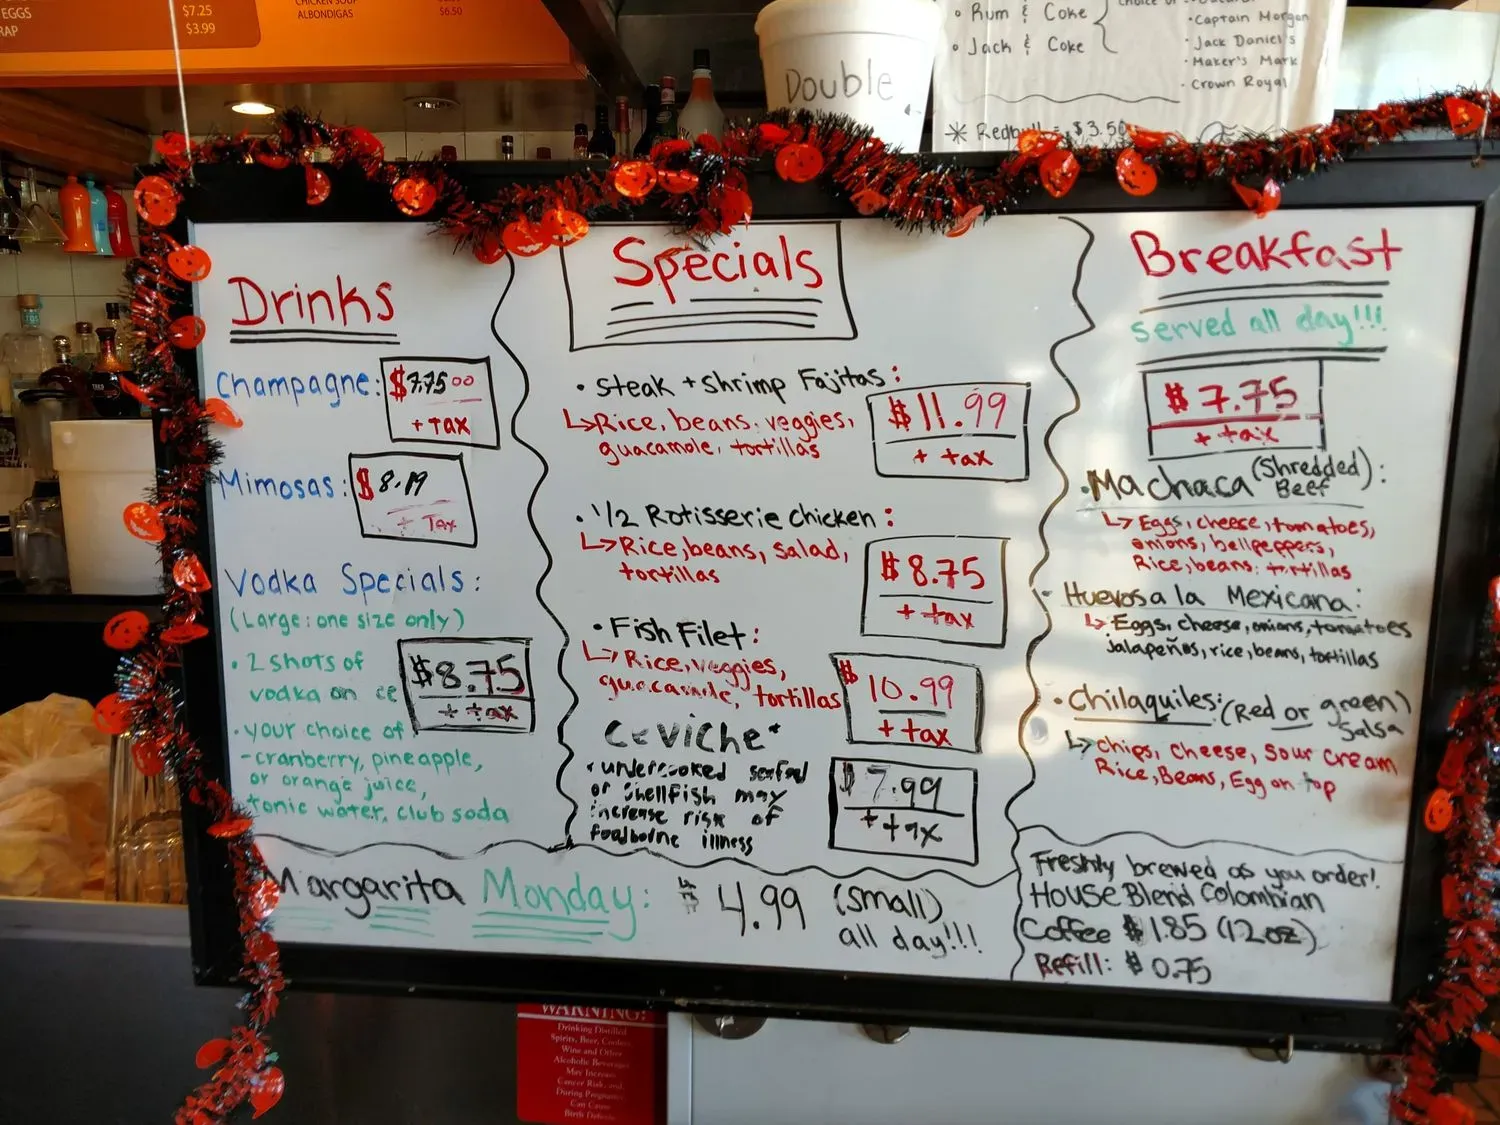 EGGS
$7.25
RAP
$3.99
CHICKEN SOUP
ALBONDIGAS
$6.50
Double
• Rum & Coke
• Jack & Coke
choice of
• Captain Morgan
• Jack Daniel's
• Maker's Mark
• Crown Royal
* Redbull = $3.50
Drinks
Champagne: $7.75 00
+ tax
Mimosas: $8.19
+ Tax
Vodka Specials:
(Large: one size only)
• 2 shots of
vodka on ce
$8.75
+ tax
• your choice of
- cranberry, pineapple,
or orange juice,
tonic water, club soda
Specials
• Steak + Shrimp Fajitas:
↳Rice, beans, veggies,
guacamole, tortillas
$11.99
+ tax
• 1/2 Rotisserie Chicken:
↳Rice, beans, salad,
tortillas
$8.75
+ tax
• Fish Filet:
↳Rice, veggies,
guacamole, tortillas
$10.99
+ tax
Ceviche*
• undercooked seafood
or shellfish may
increase risk of
foodborne illness
$7.99
+ tax
Breakfast
served all day!!!
$7.75
+ tax
• Machaca (Shredded Beef):
↳Eggs, cheese, tomatoes,
onions, bellpeppers,
Rice, beans, tortillas
• Huevos a la Mexicana:
↳Eggs, cheese, onions, tomatoes
jalapeños, rice, beans, tortillas
• Chilaquiles: (Red or green)
Salsa
↳chips, cheese, sour cream
Rice, Beans, Egg on top
Margarita Monday: $4.99 (small)
all day!!!
Freshly brewed as you order!
House Blend Colombian
Coffee $1.85 (12oz)
Refill: $0.75
WARNING:
Drinking Distilled
Spirits, Beer, Coolers
Wine and Other
Alcoholic Beverages
May Increase
Cancer Risk, and,
During Pregnancy,
Can Cause
Birth Defects